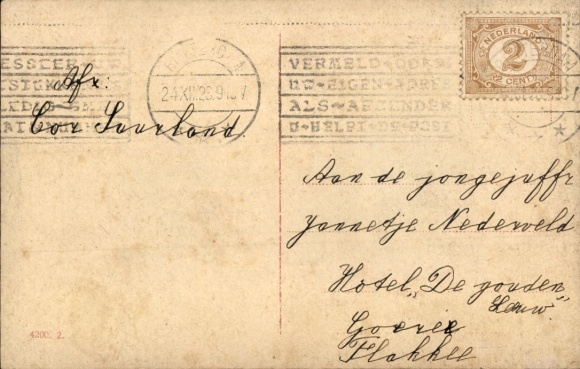 NEDERLAND
2
2 CENT
VERMELD OOK
UW EIGEN ADRES
ALS AFZENDER
U HELPT DE POST
24.XII.23.9
Afz:
Cor Suurland
Aan de jongejuffr
Jannetje Nederveld
Hotel „De gouden
Leeuw"
Goeree
Flakkee
4200. 2.